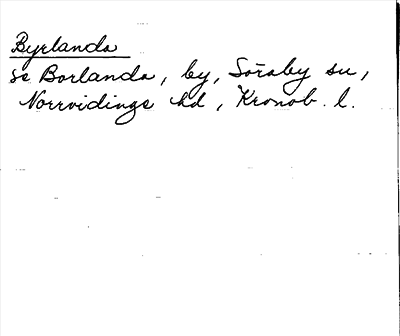 Byrlanda
se Borlanda, by, Söraby sn,
Norrvidings hd, Kronob. l.